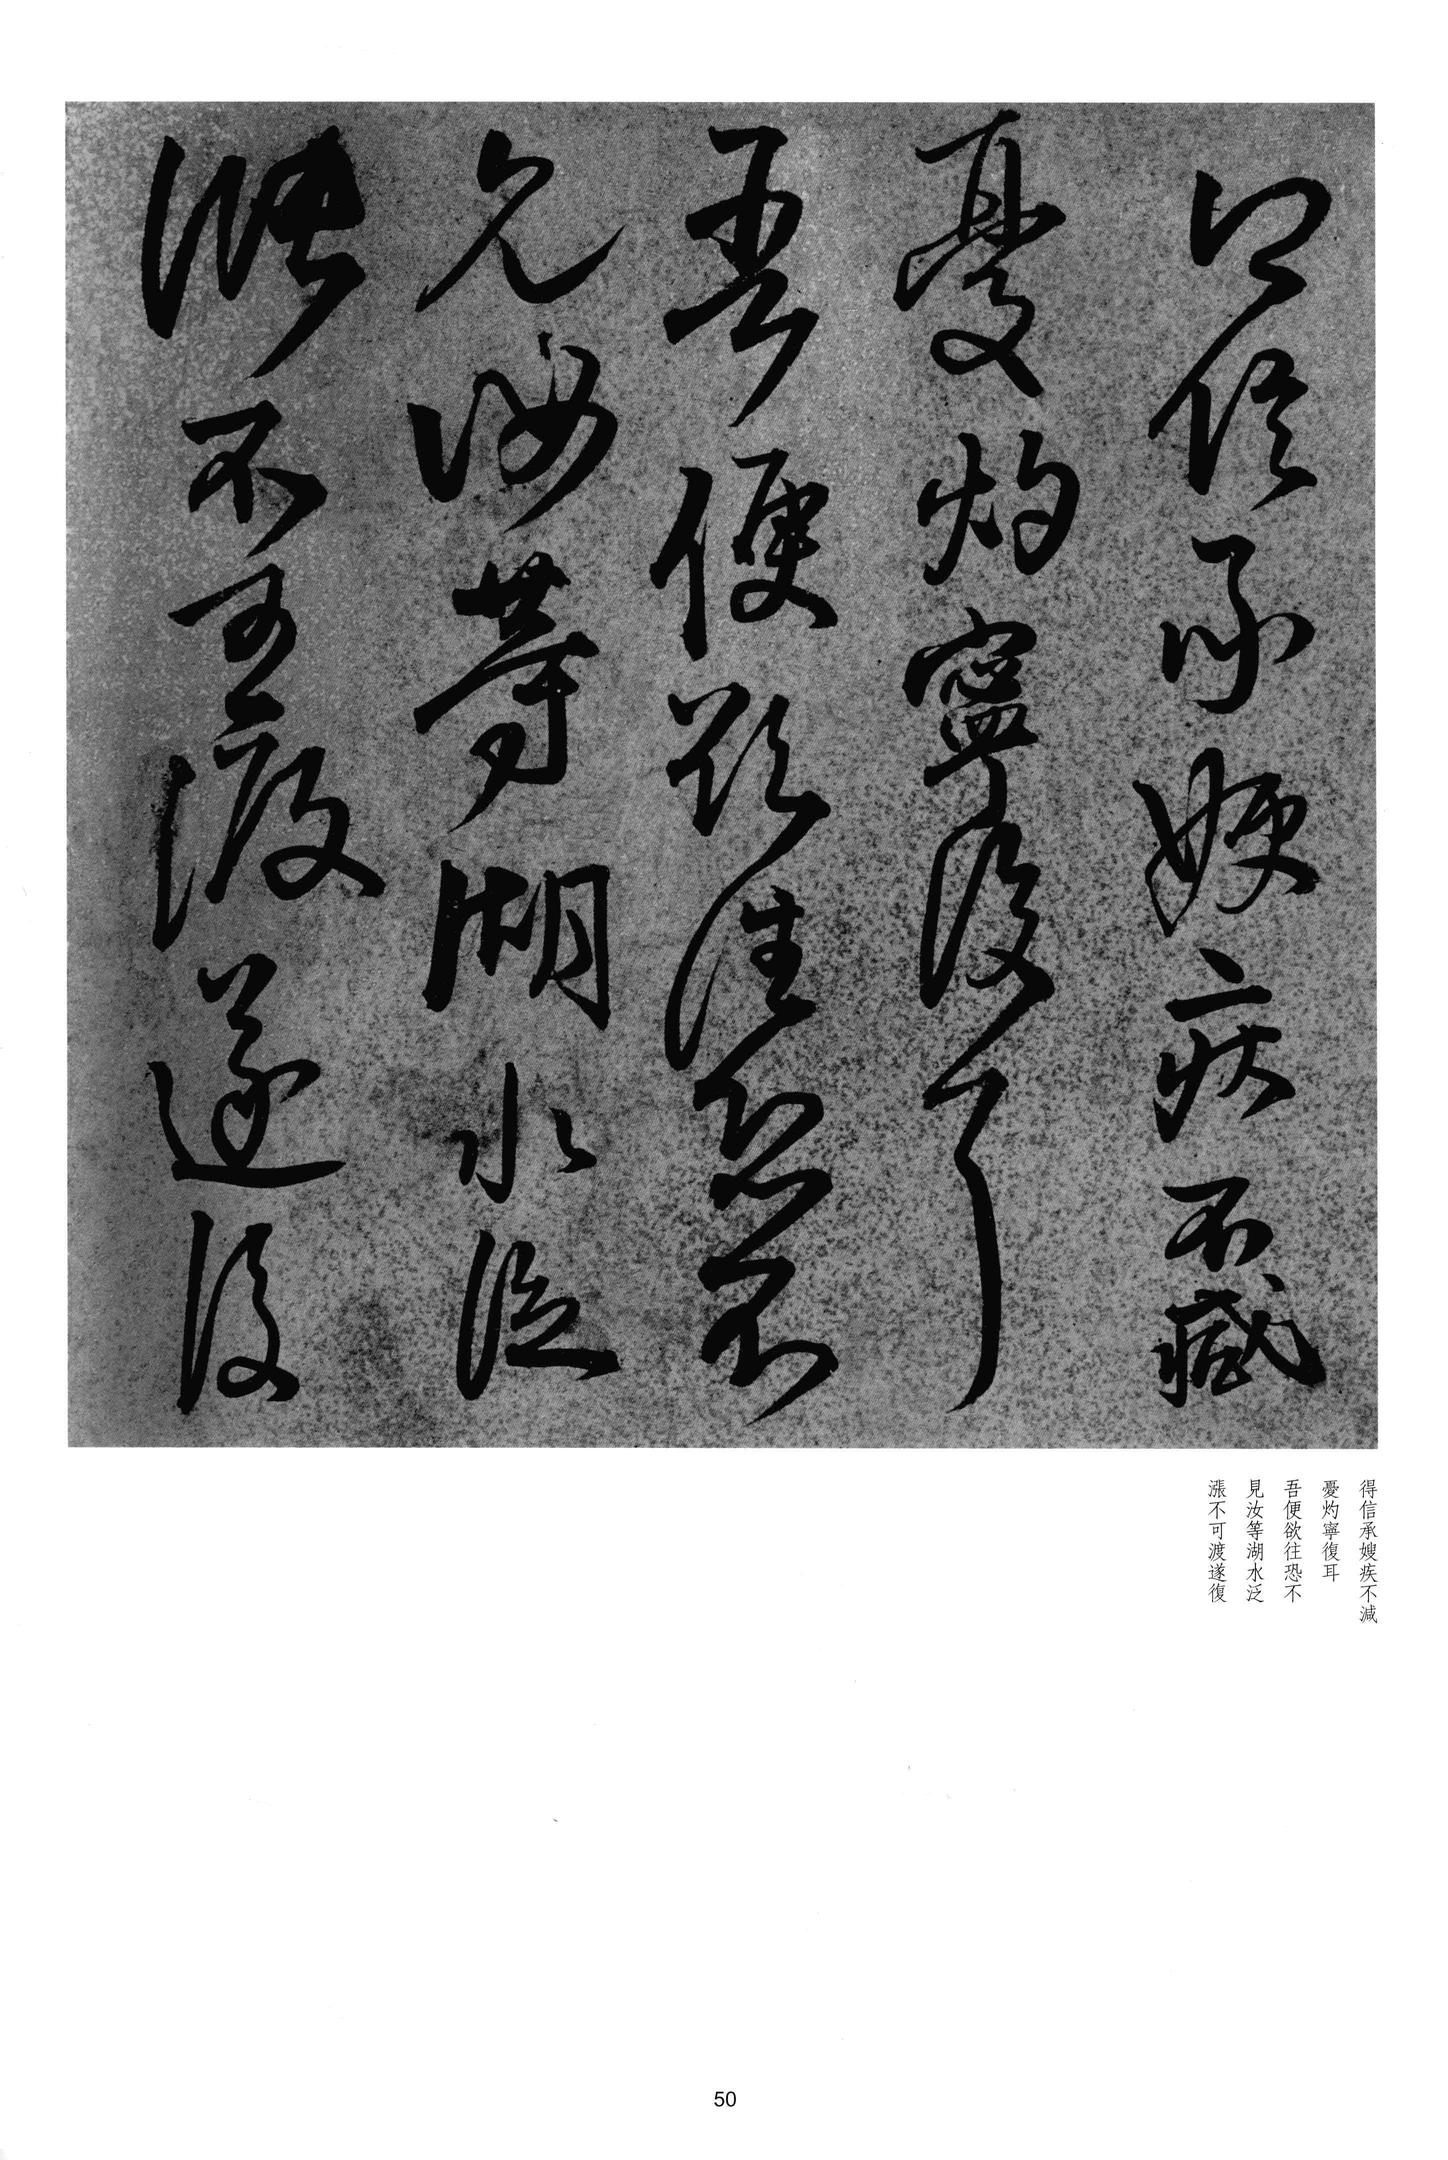 得信承嫂疾不減
憂灼寧復耳
吾便欲往恐不
見汝等湖水泛
漲不可渡遂復
得信承嫂疾不減
憂灼寧復耳
吾便欲往恐不
見汝等湖水泛
漲不可渡遂復
50